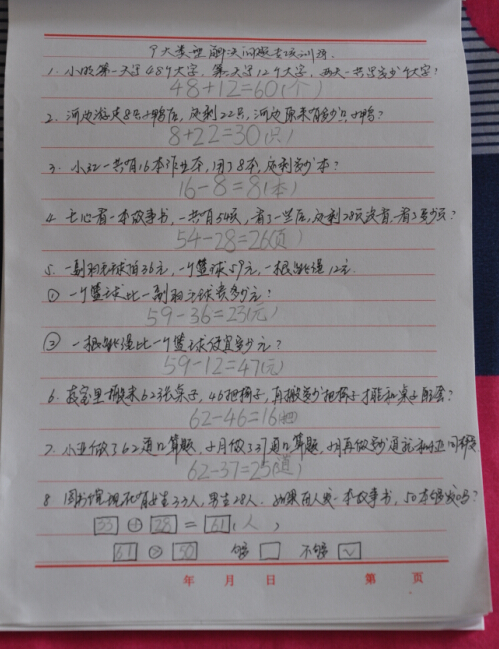 9大类型解决问题专项训练.
1. 小明第一天写48个大字, 第二天写12个大字, 两天一共写多少个大字?
48+12=60(个)
2. 河边游走8只小鸭后, 还剩22只, 河边原来有多少只小鸭?
8+22=30(只)
3. 小红一共有16本作业本, 用了8本, 还剩多少本?
16-8=8(本)
4. 七心有一本故事书, 一共有54页, 看了一些后, 还剩28页没看, 看了多少页?
54-28=26(页)
5. 一副羽毛球拍36元, 一个篮球59元, 一根跳绳12元.
① 一个篮球比一副羽毛球贵多少元?
59-36=23(元)
② 一根跳绳比一个篮球便宜多少元?
59-12=47(元)
6. 教室里搬来62张桌子, 46把椅子, 再搬多少把椅子才能和桌子配套?
62-46=16(把)
7. 小亚做了62道口算题, 小月做了37道口算题, 小月再做多少道就和小亚同样多
62-37=25(道)
8. 图书馆现在有女生33人, 男生28人. 如果每人发一本故事书, 50本够发吗?
33 + 28 = 61(人)
61 > 50 够 不够 ✓
年 月 日 第 页